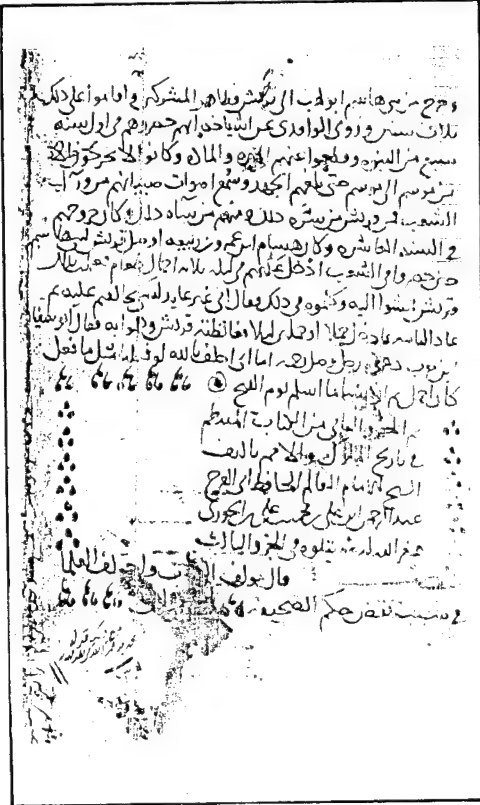 وخرج من بني هاشم ابو لهب الى قريش وظاهر المشركين واقاموا على ذلك
ثلاث سنين وروى الواقدي عن اشياخه انهم حصروهم في اول سنة
سبع من النبوة وقطعوا عنهم الميرة والمادة وكانوا لا يخرجون الا
من موسم الى موسم حتى بلغهم الجهد وسمع اصوات صبيانهم من ورآ
الشعب فمن قريش من سره ذلك ومنهم من ساه ذلك وكان خروجهم
في السنة العاشرة وكان هشام بن عمرو بن ربيعة اوصل قريش لبني هاشم
حين حصروا في الشعب ادخل عليهم في ليلة ثلاثة احمال طعام فعلمت بذلك
قريش فمشوا اليه وكلموه في ذلك فقال اني غير عايد لشي خالفكم عليه ثم
عاد الثانية فادخل حملا او حملين ليلا فغالظته قريش وهموا به فقال ابو سفيان
بن حرب دعوه رجل وصل رحمه اما اني احلف بالله لو فعلنا مثل ما فعل
كان اجمل ثم ان هشاما اسلم يوم الفتح
تم الجزو الثاني من الكتاب المنتظم
في تاريخ الملوك والامم تاليف
الشيخ الامام العالم الحافظ ابي الفرج
عبد الرحمن ابن علي بن محمد بن علي بن الجوزي
غفر الله له يتلوه في الجزو الثالث
قال مولف الكتاب واختلف العلما
في سبب نقض حكم الصحيفة